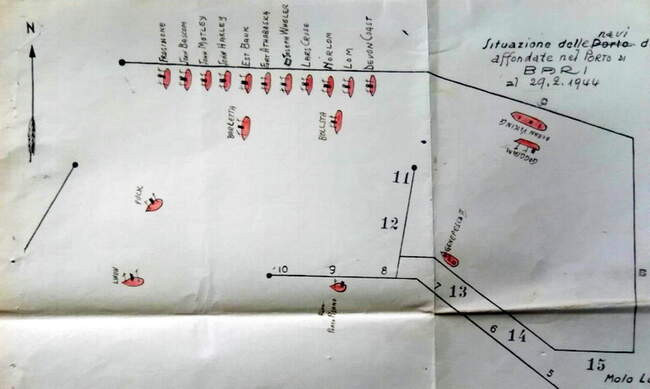 N
Situazione delle Porto navi d
affondate nel PORTO DI
BARI
al 29.2.1944
FROSINONE
JOHN BASCOM
JOHN MOTLEY
JOHN HARVEY
EST BANK
FORT ATHABASKA
JOSEPH WHELER
LARS CRUSE
NORLOM
LOM
DEVON COAST
BARLETTA
BOLLSTA
PUCK
LWOW
GENEPESCA II
11
12
10
9
8
7
13
6
14
5
15
Molo